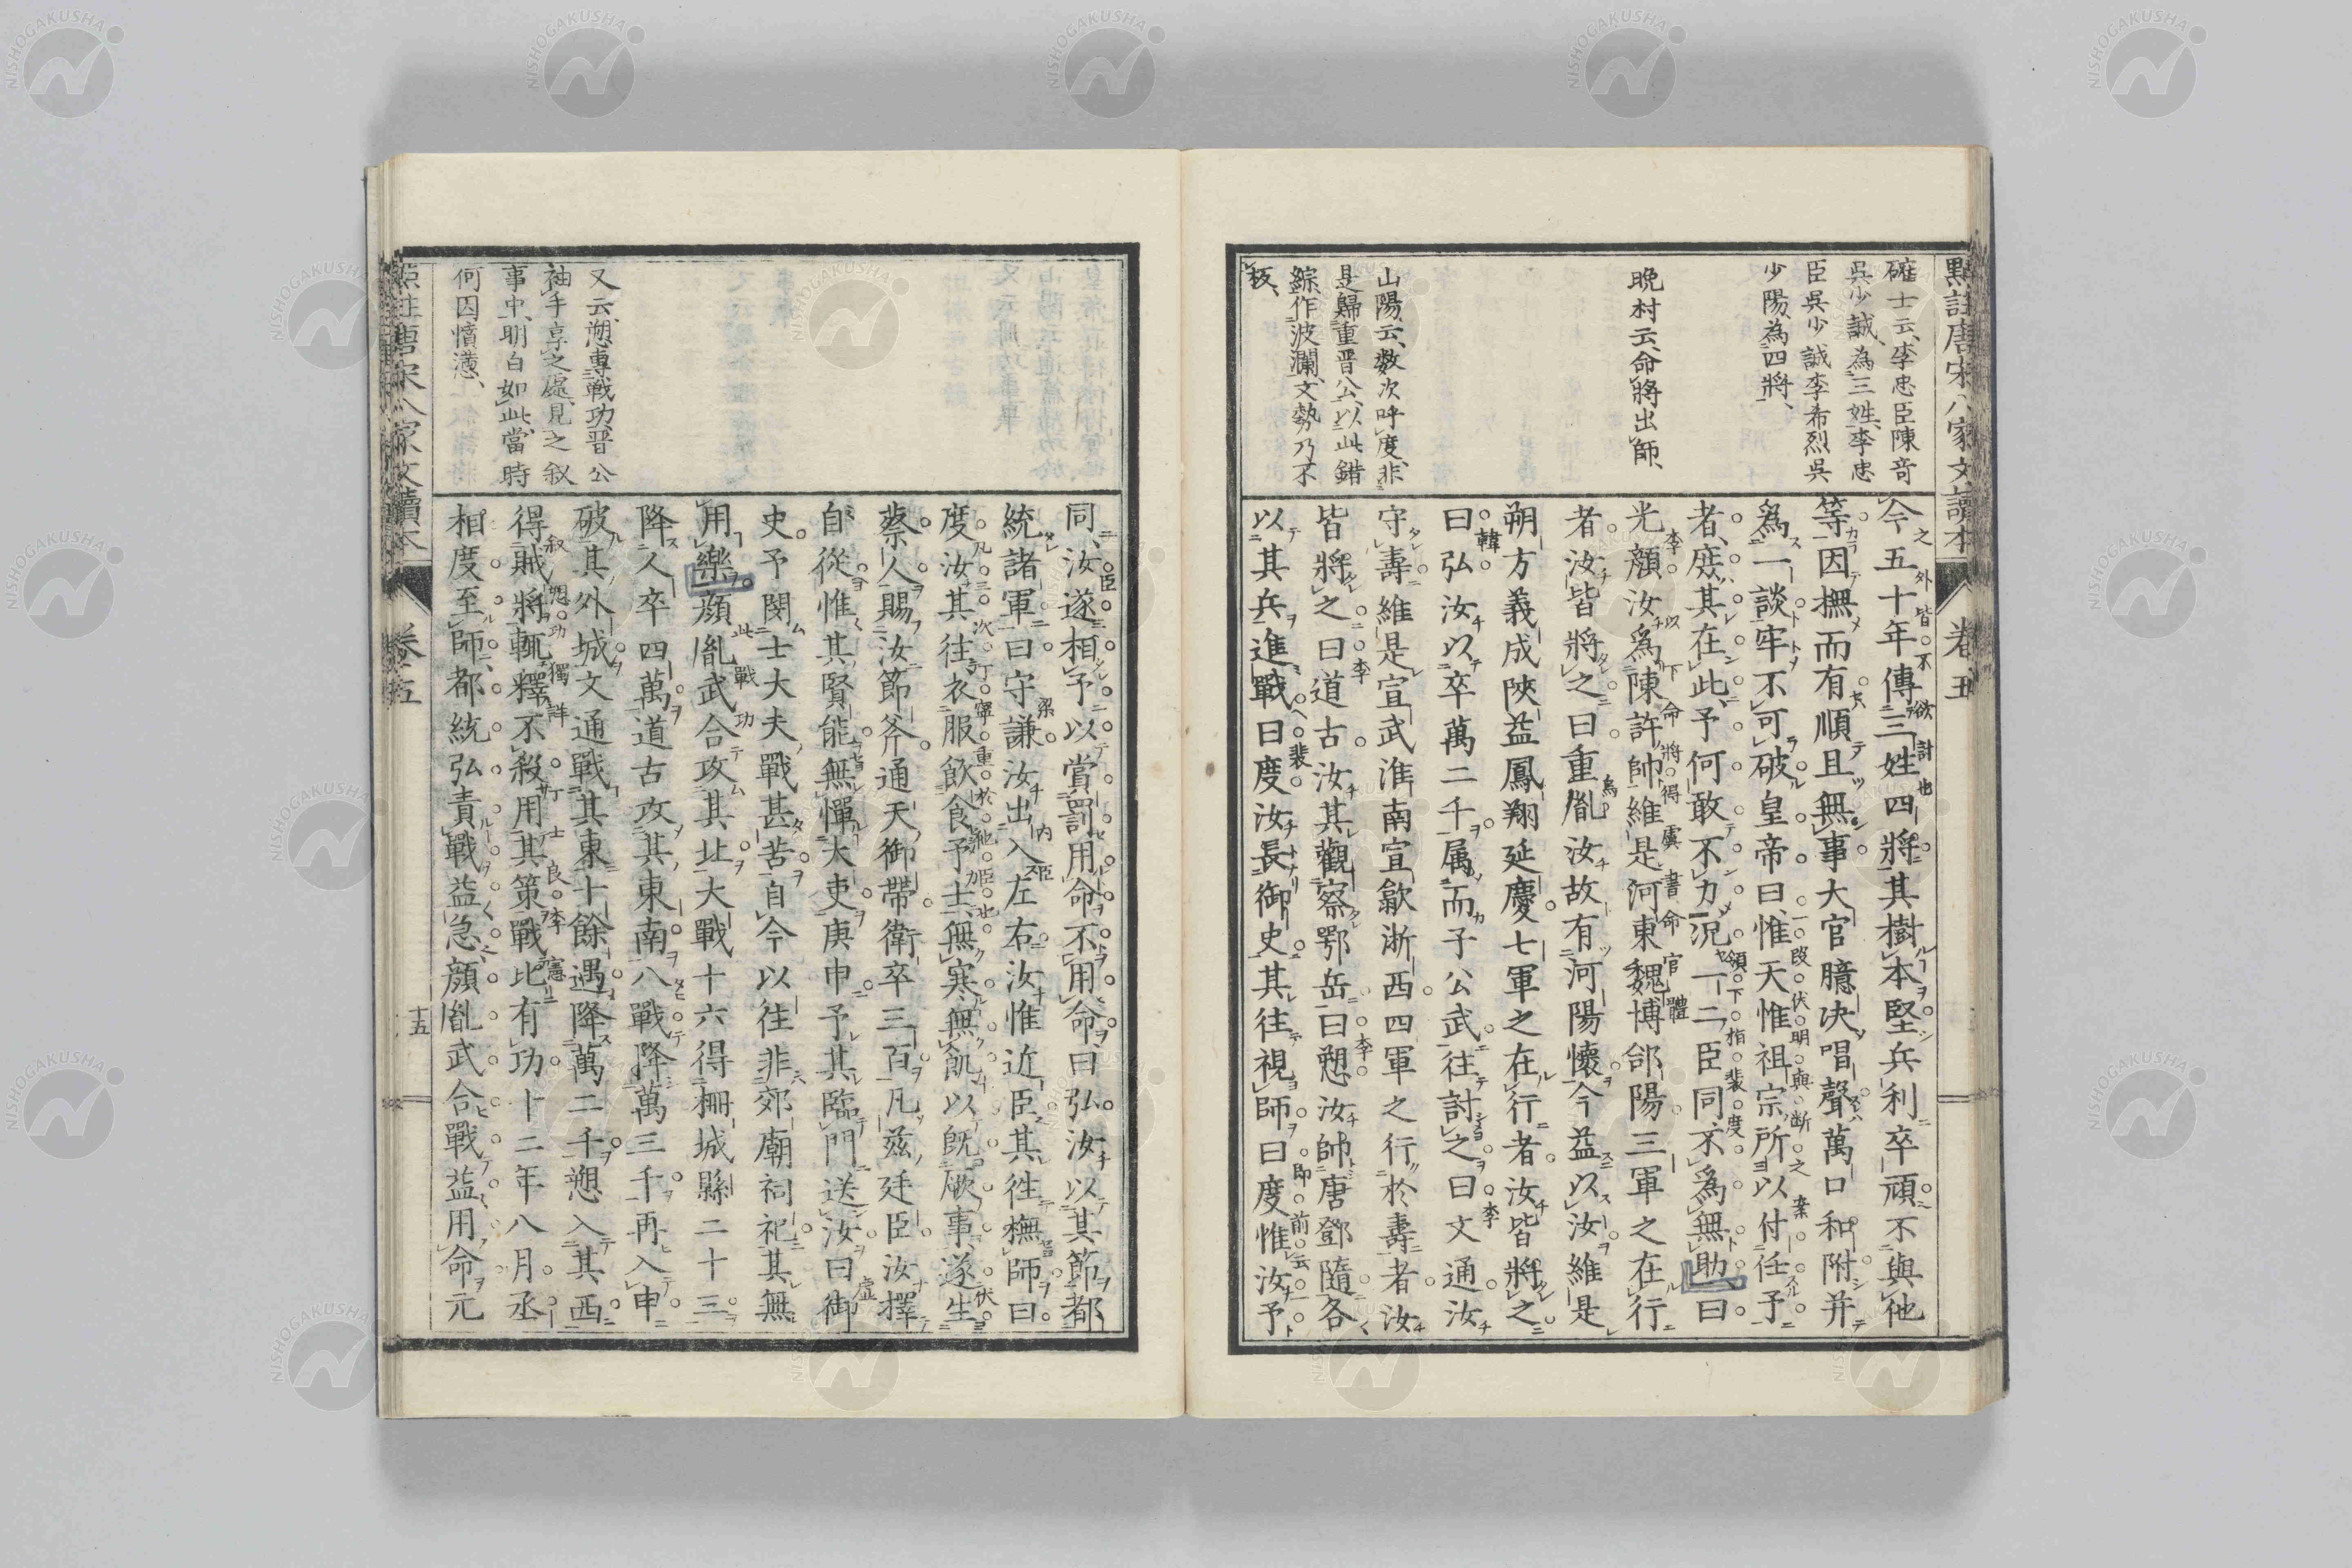 點註唐宋八家文讀本 卷五
確士云、李忠臣陳奇
吳少誠、為三姓、李忠
臣吳少誠李希烈吳
少陽、為四將、
晚村云、命將出師、
山陽云、數次呼度、非
是歸重晋公、以此錯
綜作波瀾、文勢乃不
板、
今五十年傳三姓四將其樹本堅兵利卒頑不與他
等因撫而有順且無事大官臆决唱聲萬口和附并
為一談牢不可破皇帝曰惟天惟祖宗所以付任予
者、庶其在此、予何敢不力况一二臣同、不為無助、曰
光顔汝為陳許帥維是河東魏博郃陽三軍之在行
者汝皆將之曰重胤汝故有河陽懷今益以汝維是
朔方義成陝益鳳翔延慶七軍之在行者汝皆將之
曰弘汝以卒萬二千属而子公武往討之曰文通汝
守壽維是宣武淮南宣歙浙西四軍之行於壽者汝
皆將之曰道古汝其觀察鄂岳曰愬汝帥唐鄧隨各
以其兵進戰曰度汝長御史其往視師曰度惟汝予
同、汝遂相予以賞罰用命不用命、曰弘汝以其節都
統諸軍曰守謙汝出入左右汝惟近臣其徃撫師曰
度汝其往衣服飲食予士無寒無飢以既厥事遂生
蔡人賜汝節斧通天御帶衛卒三百凡兹廷臣汝擇
自從惟其賢能無憚大吏庚申予其臨門送汝曰御
史予閔士大夫戰甚苦自今以往非郊廟祠祀其無
用樂顔胤武合攻其北大戰十六得柵城縣二十三
降人卒四萬道古攻其東南八戰降萬三千再入申
破其外城文通戰其東十餘遇降萬二千愬入其西
得賊將輒釋不殺用其策戰比有功十二年八月丞
相度至師都統弘責戰益急顔胤武合戰益用命元
又云、愬專戰功、晋公
袖手享之處、見之叙
事中、明白如此、當時
何因憤懣、
點註唐宋八家文讀本 卷五 十五